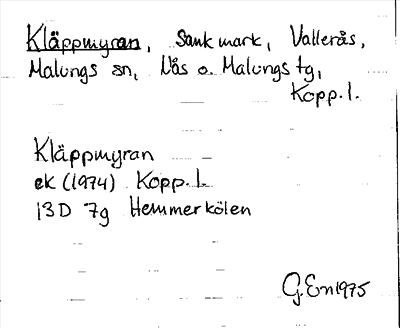 Kläppmyran, Sank mark, Vallerås,
Malungs sn, Nås o. Malungs tg,
Kopp. l.
Kläppmyran
ek (1974) Kopp. L
13D 7g Hemmerkölen
G. En 1975